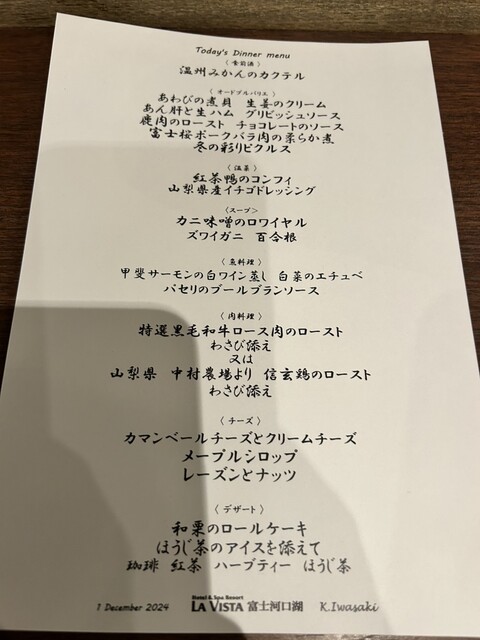 Today's Dinner menu
〈 食前酒 〉
温州みかんのカクテル
〈 オードブルバリエ 〉
あわびの煮貝　生姜のクリーム
あん肝と生ハム　グリビッシュソース
鹿肉のロースト　チョコレートのソース
富士桜ポークバラ肉の柔らか煮
冬の彩りピクルス
〈 温菜 〉
紅茶鴨のコンフィ
山梨県産イチゴドレッシング
〈スープ〉
カニ味噌のロワイヤル
ズワイガニ　百合根
〈 魚料理 〉
甲斐サーモンの白ワイン蒸し　白菜のエチュベ
パセリのブールブランソース
〈 肉料理 〉
特選黒毛和牛ロース肉のロースト
わさび添え
又は
山梨県　中村農場より　信玄鶏のロースト
わさび添え
〈 チーズ 〉
カマンベールチーズとクリームチーズ
メープルシロップ
レーズンとナッツ
〈 デザート 〉
和栗のロールケーキ
ほうじ茶のアイスを添えて
珈琲　紅茶　ハーブティー　ほうじ茶
Hotel & Spa Resort
1 December 2024　LA VISTA 富士河口湖　K.Iwasaki